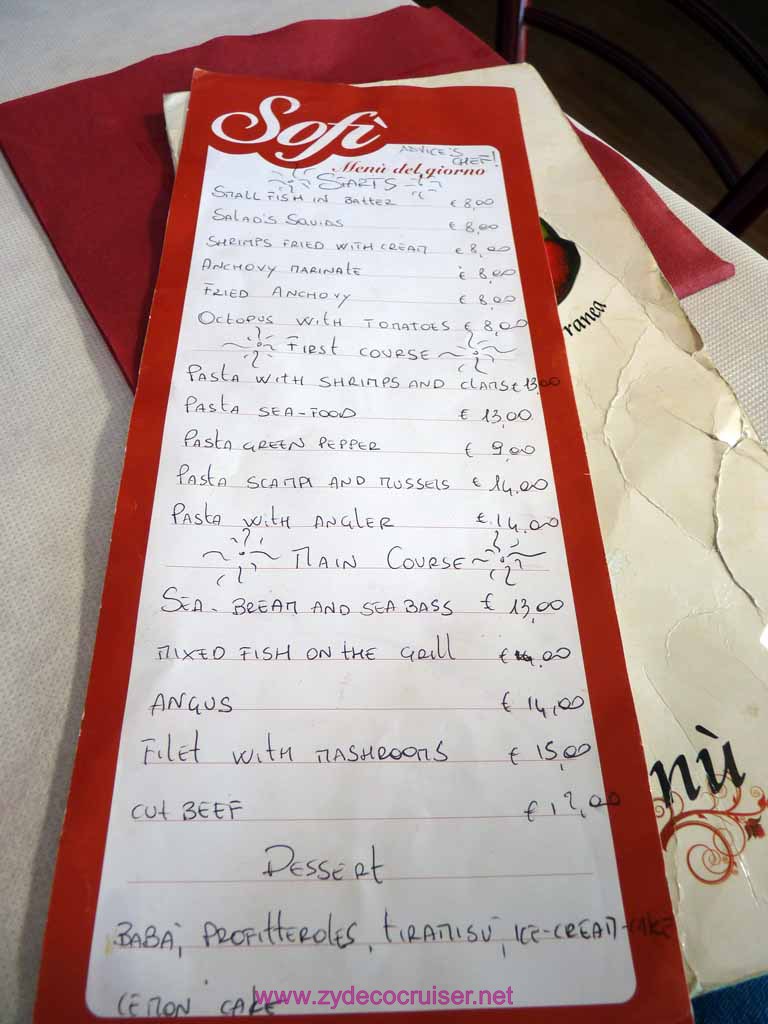 Sofì
ADVICE'S
CHEF!
Menù del giorno
STARTS
SMALL FISH IN BATTER € 8,00
SALAD'S SQUIDS € 8,00
SHRIMPS FRIED WITH CREAM € 8,00
ANCHOVY MARINATE € 8,00
FRIED ANCHOVY € 8,00
OCTOPUS WITH TOMATOES € 8,00
FIRST COURSE
PASTA WITH SHRIMPS AND CLAMS € 13,00
PASTA SEA-FOOD € 13,00
PASTA GREEN PEPPER € 9,00
PASTA SCAMPI AND MUSSELS € 14,00
PASTA WITH ANGLER € 14,00
MAIN COURSE
SEA-BREAM AND SEA BASS € 13,00
MIXED FISH ON THE GRILL €
ANGUS € 14,00
FILET WITH MASHROOMS € 15,00
CUT BEEF € 12,00
DESSERT
BABA', PROFITTEROLES, TIRAMISU', ICE-CREAM-CAKE
LEMON CAKE
ranea
nù
www.zydecocruiser.net